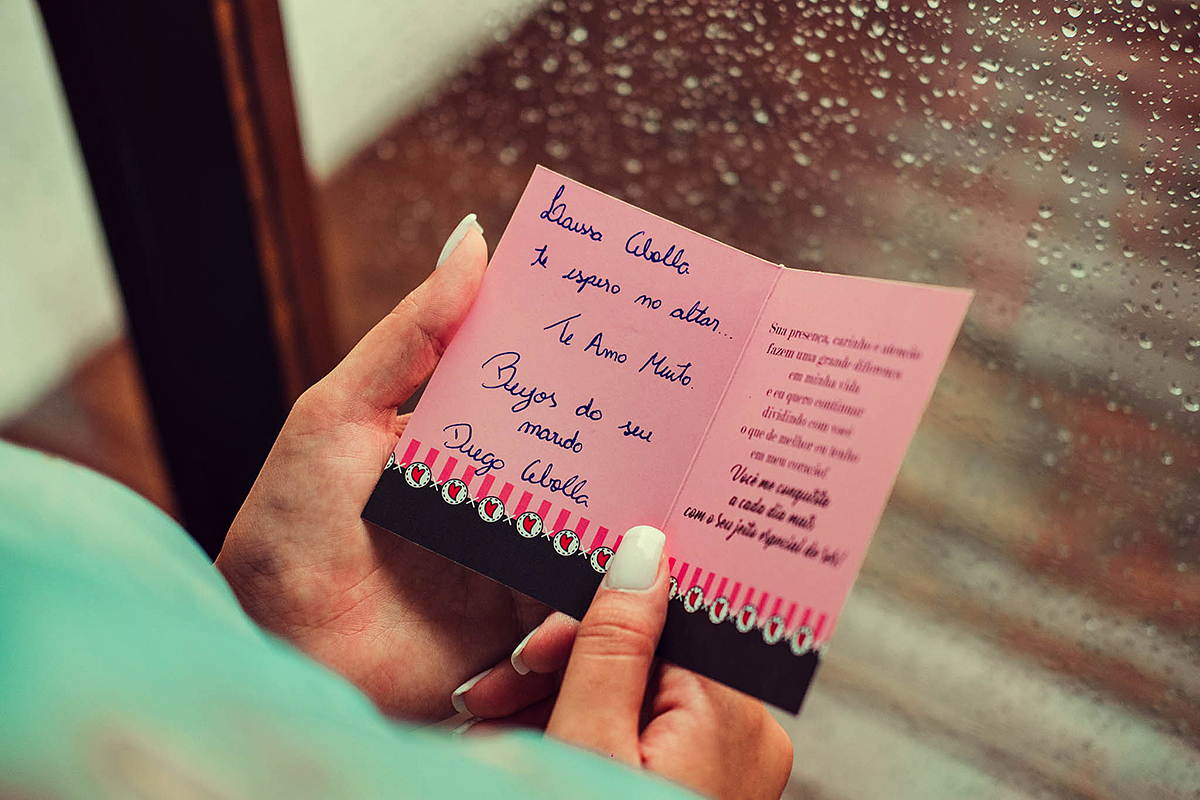 Laissa Cebolla
te espero no altar...
Te Amo Muito.
Beijos do seu
marido
Diego Cebolla
Sua presença, carinho e atenção
fazem uma grande diferença
em minha vida
e eu quero continuar
dividindo com você
o que de melhor eu tenho
em meu coração!
Você me conquista
a cada dia mais
com o seu jeito especial de ser!